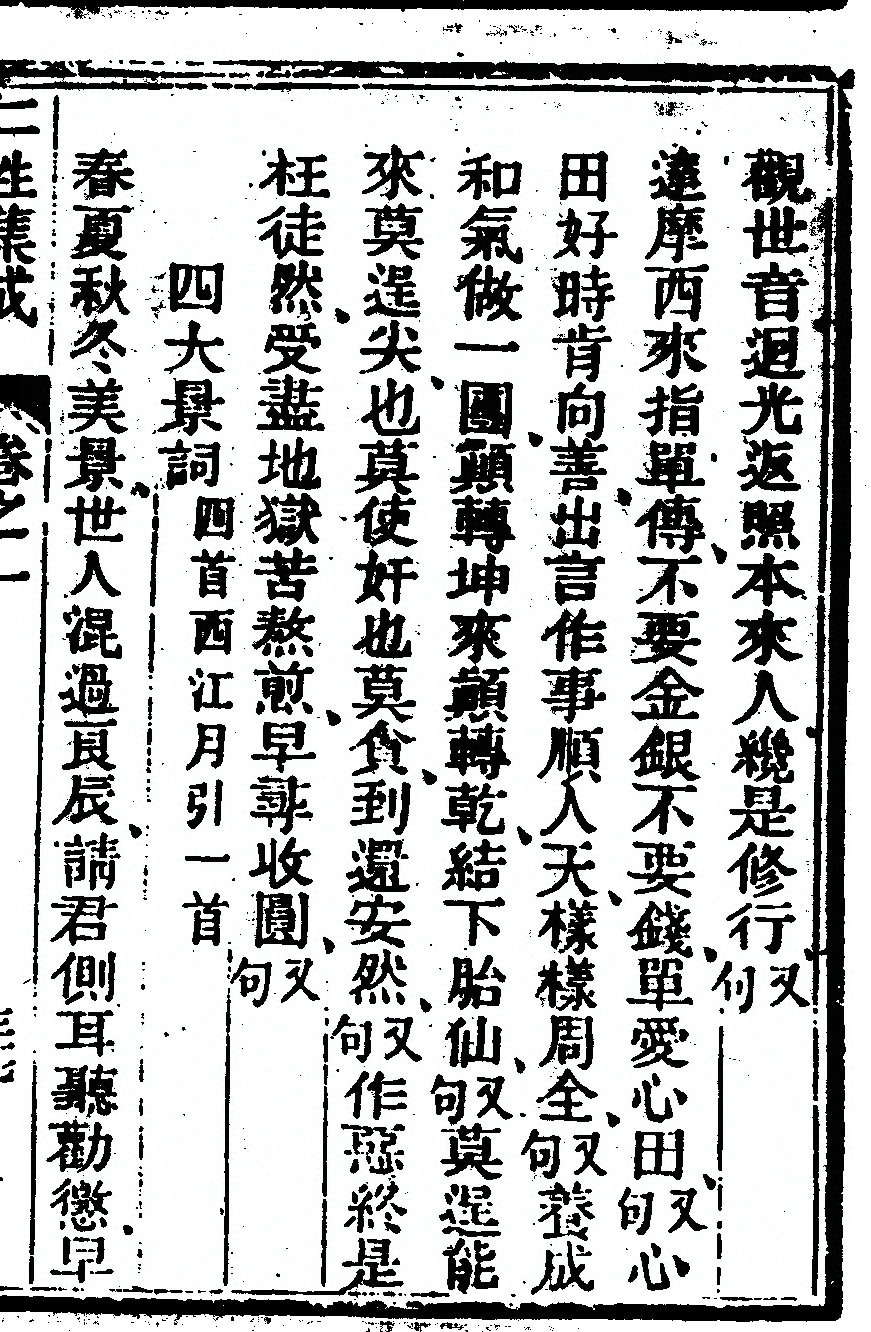 觀世音迴光返照本來人纔是修行又句
達摩西來指單傳不要金銀不要錢單愛心田又句心
田好時肯向善出言作事順人天樣樣周全又句養成
和氣做一團顛轉坤來顛轉乾結下胎仙又句莫逞能
來莫逞尖也莫使奸也莫貪到還安然又句作惡終是
枉徒然受盡地獄苦熬煎早尋收圓又句
四大景詞四首西江月引一首
春夏秋冬美景世人混過良辰請君側耳聽勸懲早
集成 卷之二